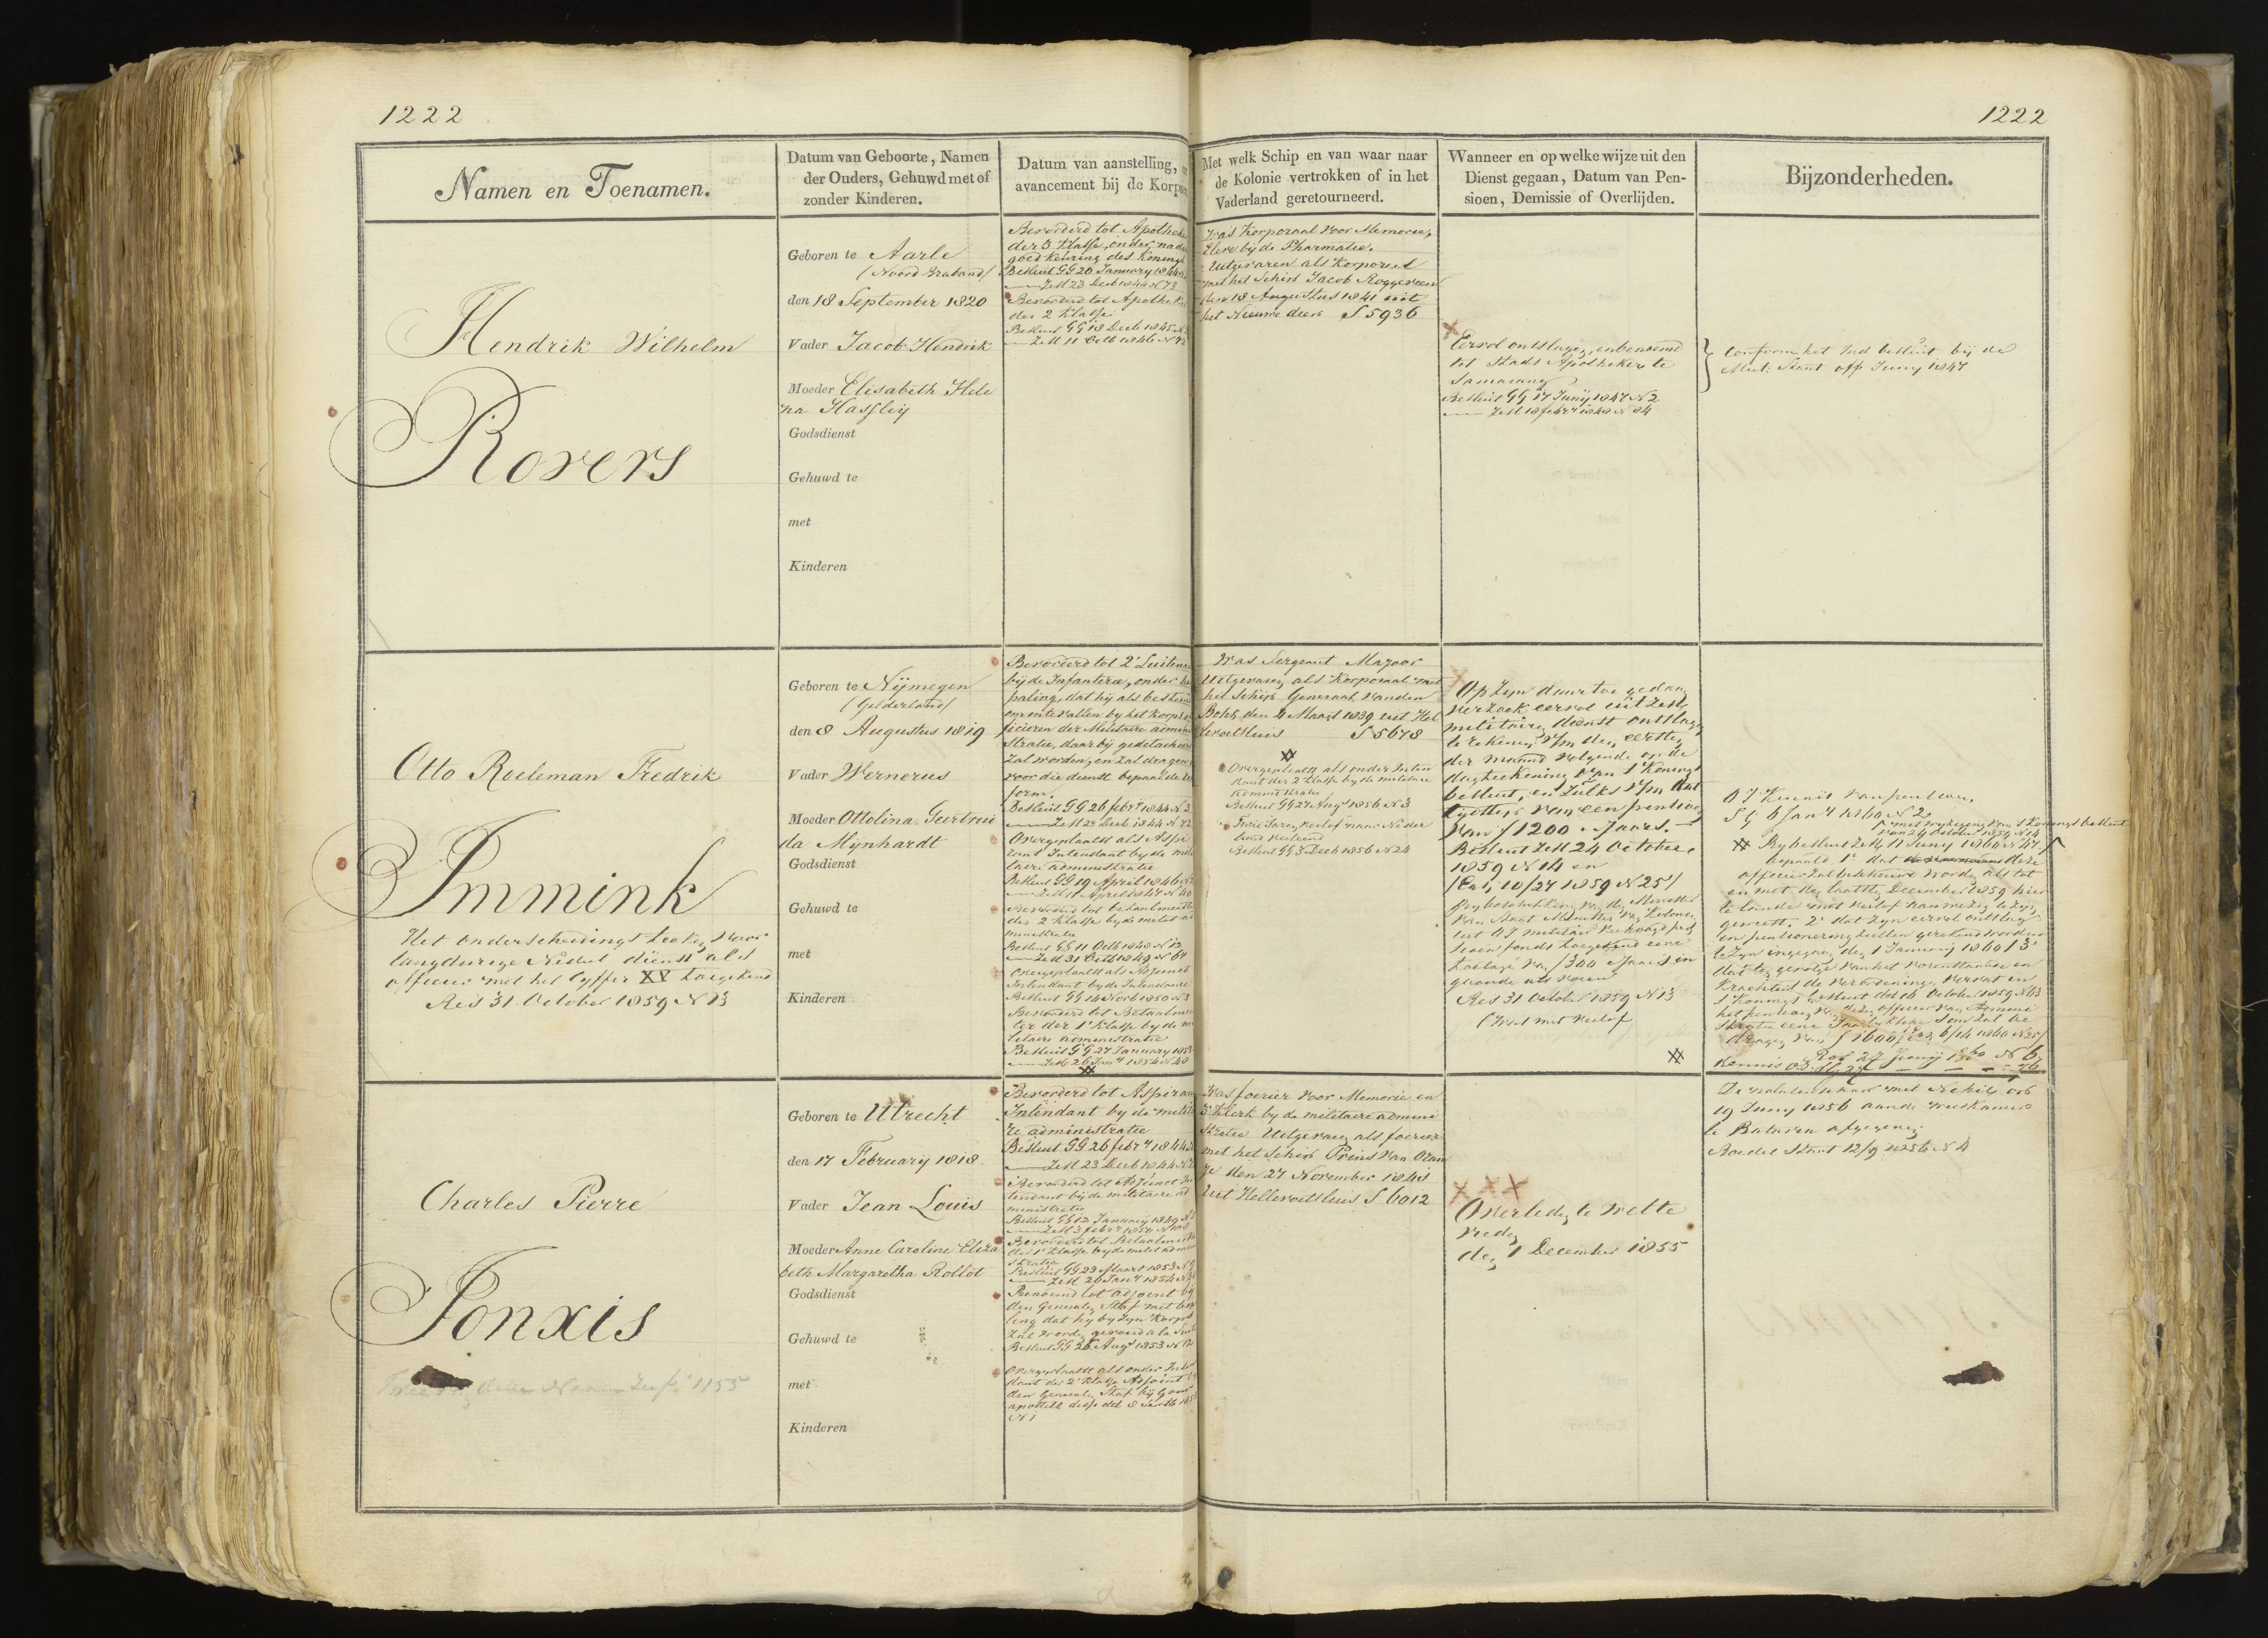 1222
1222
Namen en Toenamen.
Datum van Geboorte, Namen
der Ouders, Gehuwd met of
zonder Kinderen.
Datum van aanstelling,
avancement bij de Korpsen
Met welk Schip en van waar naar
de Kolonie vertrokken of in het
Vaderland geretourneerd.
Wanneer en op welke wijze uit den
Dienst gegaan, Datum van Pen-
sioen, Demissie of Overlijden.
Bijzonderheden.
Hendrik Wilhelm
Rovers
Geboren te Aarle
(Noord Braband)
den 18 September 1820
Vader Jacob Hendrik
Moeder Elisabeth Hele
na Hassleij
Godsdienst
Gehuwd te
met
Kinderen
Bevorderd tot Apotheke
der 3 Klasse, onder nade
goedkeuring des Konings
Besluit GG 20 January 1844
ZM 23 Decb 1844 N 73
Bevorderd tot Apotheke
der 2 Klasse
Besluit GG 18 Decb 1845 N
ZM 11 Octb 1846 N 72
Was Korporaal voor Memorie,
Eleve bij de Pharmatie.
Uitgevaren als Korporaal
met het Schip Jacob Roggeveen
den 18 Augustus 1841 uit
het Nieuwe diep S 5936
Eervol ontslagen, en benoemd
tot Stads Apotheker te
Samarang
Besluit GG 17 Junij 1847 N 2
ZM 18 febry 1848 N 84
Conform het Ind besluit bij de
Mut: Staat off Junij 1847
Otto Roeleman Fredrik
Immink
Het onderscheidings teeken voor
langdurige Nederl dienst als
officier met het cyffer XV toegekend
Res 31 October 1859 N 13
Geboren te Nijmegen
(Gelderland)
den 8 Augustus 1819
Vader Wernerus
Moeder Ottolina Geertrui
da Mijnhardt
Godsdienst
Gehuwd te
met
Kinderen
Bevorderd tot 2e Luitena
bij de Infanterie, onder be
paling, dat hij als bestemd
om inte vallen by het Korps of
ficieren der Militaire admini
stratie, daar bij gedetacheerd
zal worden, en zal dragen
voor die dienst bepaalde uni
form.
Besluit GG 26 febry 1844 N 2
ZM 23 Decb 1844 N 72
Overgeplaatst als Aspi
rant Intendant by de mili
taire administratie
Besluit GG 19 April 1846 N
ZM 11 April 1847 N 40
Bevorderd tot betaalmeester
der 2 Klasse by de milit ad
ministratie
Besluit GG 11 Octb 1848 N 12
ZM 31 Octb 1849 N 67
Overgeplaatst als Adjunct
Intendant by de Intendance
Besluit GG 14 Novb 1850 N 3
Bevorderd tot Betaalmees
ter der 1e Klasse by de mi
litaire administratie
Besluit GG 27 January 1853
ZM 26 Jany 1854 N 48
Was Sergeant Majoor
Uitgevaren als Korporaal met
het Schip Generaal van den
Bosch den 4 Maart 1839 uit Hel
levoetsluis S 5678
Overgeplaatst als onder Inten
dant der 2 Klasse by de militaire
administratie
Besluit GG 27 Augs 1856 N 3
Twee Jaren Verlof naar Neder
land verleend
Besluit GG 3 Decb 1856 N 24
Op zyn daartoe gedaan
verzoek eervol uit Zr Ms
militairen dienst ontslagen
te rekenen v/m den eersten
der maand volgende op de
dagteekening van s Konings
besluit, en zulks v/m dat
tydstip van een pensioen
van f 1200 's Jaars.
Besluit ZM 24 October
1859 N 14 en
(Kab. 10/27 1859 N 25)
toelage van f 300 's Jaars in
Res 31 October 1859 N 13
(Was met verlof
O I Kennis van pensioen,
S G 6 Jany 1860 N 2
met wyziging van s Konings besluit
van 24 October 1859 N 14
By besluit ZM 11 Juny 1860 N 47
bepaald 1e dat deze
officier zal beschouwd worden als tot
en met den laatsten December 1859 hier
te lande met verlof aanwezig te zyn
geweest. 2e dat zyn eervol ontslag
en pensionering zullen gerekend worden
te zyn ingegaan den 1 January 1860 3e
dat ten gevolge van het vorenstaande en
krachtens de verordening vervat in
s Konings besluit dd 16 October 1859 N 63
het pensioen van dezen officier van Admini
stratie eene Jaarlyksche som zal be
dragen van f 1600
Kennis O.I. Res 27 Junij 1860 N 6
Charles Pierre
Ponxis
1155
Geboren te Utrecht
den 17 February 1818
Vader Jean Louis
Moeder Anne Caroline Eliza
beth Margaretha Rollot
Godsdienst
Gehuwd te
met
Kinderen
Bevorderd tot Aspirant
Intendant by de militai
re administratie
Besluit GG 26 febry 1844
ZM 23 Decb 1844 N
Bevorderd tot Adjunct In
tendant bij de militaire ad
ministratie
Besluit GG 12 January 1849 N 5
ZM 3 febry 1850 N
Bevorderd tot Betaalmeester
der 1e Klasse by de milit admini
stratie
Besluit GG 23 Maart 1853 N 9
ZM 26 Jany 1854 N 48
Benoemd tot adjoint by
den Generalen Staf met bepa
ling dat hy by zyn Korps
zal worden gevoerd a la Suite
Besluit GG 26 Augs 1853 N
Overgeplaatst als onder Inten
dant der 2e Klasse Adjoint by
den Generalen Staf bij Gouv
apostill
N 1
Was foerier voor Memorie en
3e Klerk by de militaire admini
stratie Uitgevaren als foerier
met het Schip Prins van Oran
je den 27 November 1841
uit Hellevoetsluis S 6012
Overleden te Welte
vreden
den 1 December 1855
19 Juny 1856 aan de weeskamer
te Batavia afgegeven
Boedel Staat 12/9 1856 N 4